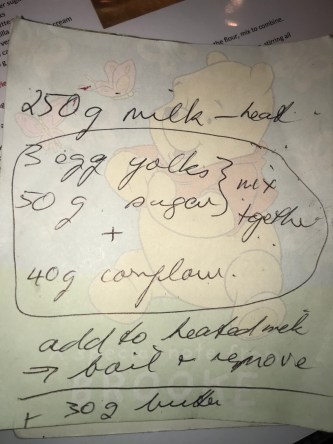 the flour, mix to combine.
250g milk – heat
3 egg yolks } mix
50 g sugar } together
+
40g cornflour.
add to heated milk
→ boil + remove
+ 30g butter